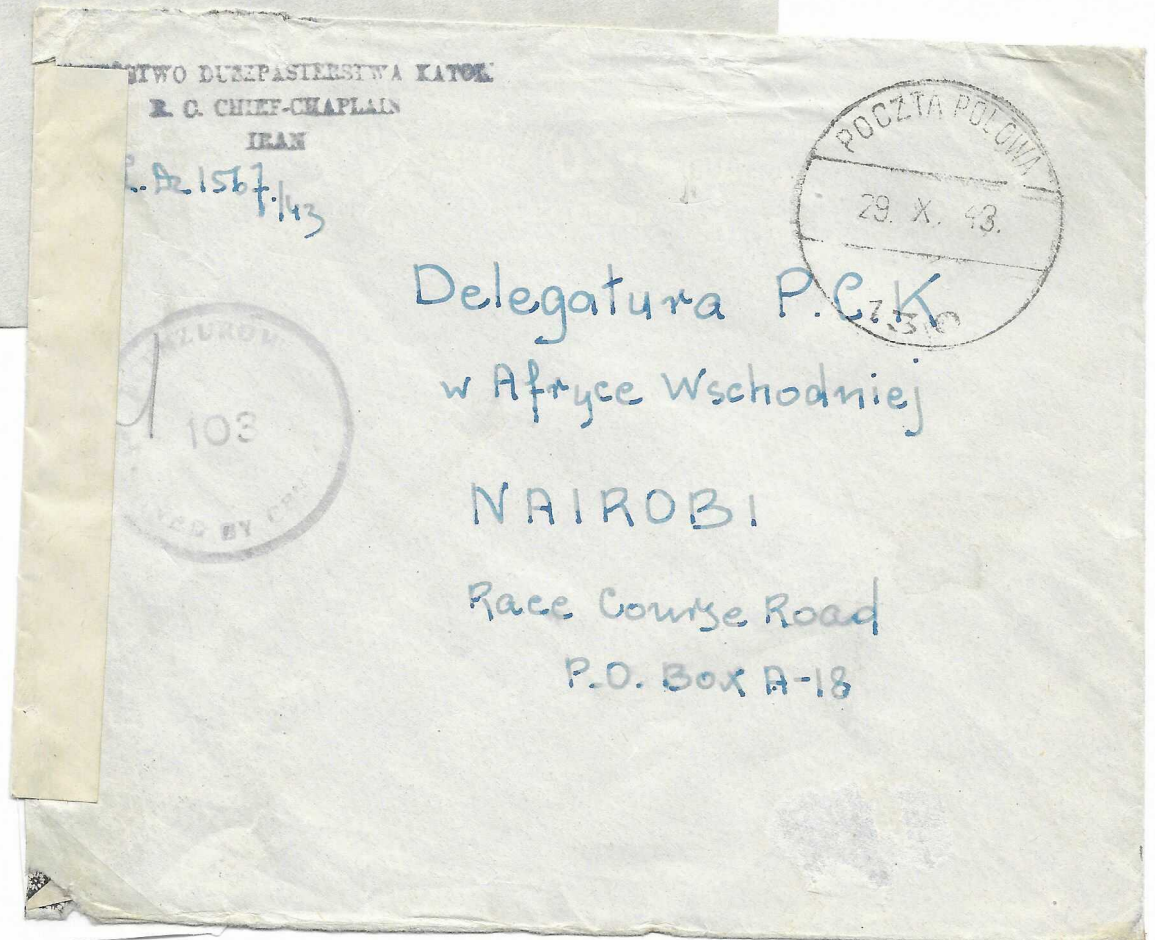 DUSZPASTERSTWA KATOL.
R. C. CHIEF-CHAPLAIN
IRAN
L. Dz 1567/43
POCZTA POLOWA
29. X. 43.
Delegatura P.C.K
w Afryce Wschodniej
103
BY
NAIROBI
Race Course Road
P.O. Box A-18